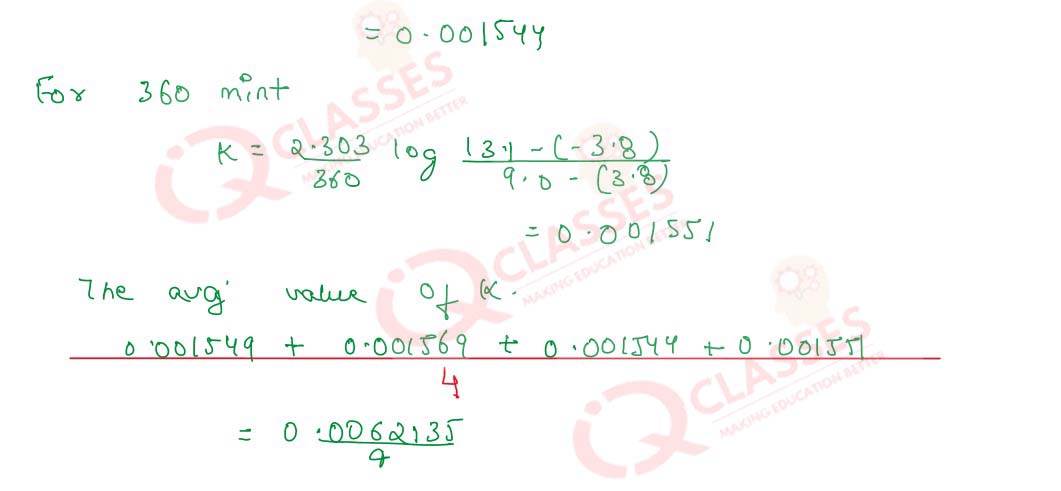 = 0.001544
For 360 mint
K = 2.303/360 log 13.1 - (-3.8)/9.0 - (3.8)
= 0.001551
The avg value of K.
0.001549 + 0.001569 + 0.001544 + 0.001551
4
= 0.0062135/4
IQ CLASSES
MAKING EDUCATION BETTER
IQ CLASSES
MAKING EDUCATION BETTER
IQ CLASSES
MAKING EDUCATION BETTER